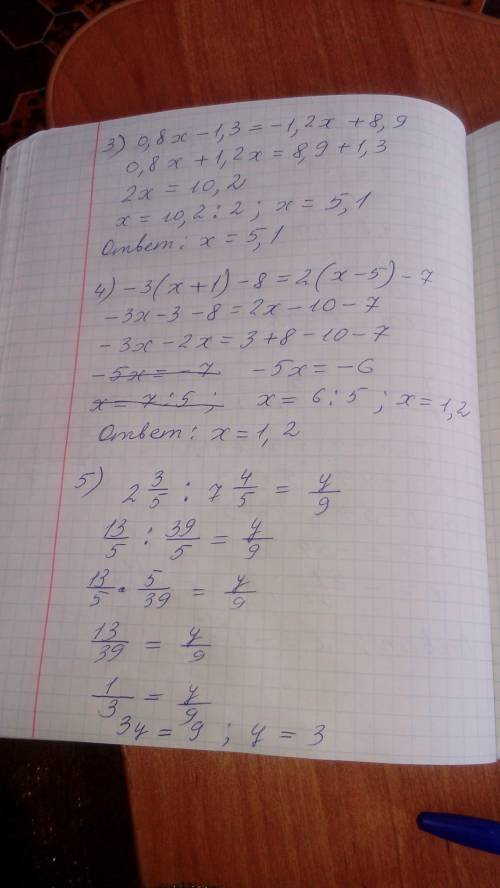 3) 0,8x - 1,3 = -1,2x + 8,9
0,8x + 1,2x = 8,9 + 1,3
2x = 10,2
x = 10,2 : 2 ; x = 5,1
Ответ: x = 5,1
4) -3(x+1) - 8 = 2(x-5) - 7
-3x - 3 - 8 = 2x - 10 - 7
-3x - 2x = 3 + 8 - 10 - 7
-5x = -7 -5x = -6
x = 7 : 5 ; x = 6 : 5 ; x = 1,2
Ответ: x = 1,2
5) 2 3/5 : 7 4/5 = y/9
13/5 : 39/5 = y/9
13/5 · 5/39 = y/9
13/39 = y/9
1/3 = y/9
3y = 9 ; y = 3